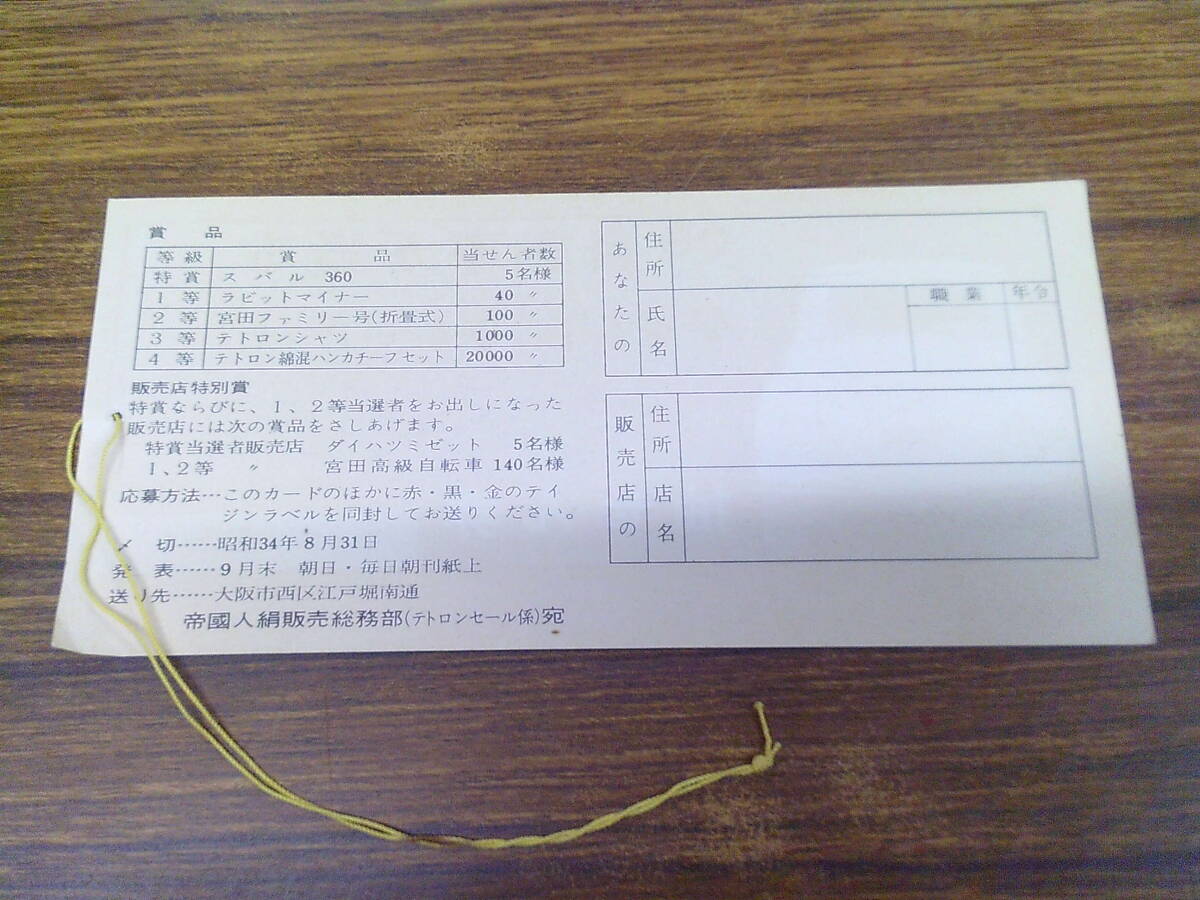 賞 品
等級 賞 品 当せん者数
特賞 スバル 360 5名様
1 等 ラビットマイナー 40 〃
2 等 宮田ファミリー号(折畳式) 100 〃
3 等 テトロンシャツ 1000 〃
4 等 テトロン綿混ハンカチーフセット 20000 〃
販売店特別賞
特賞ならびに、1、2等当選者をお出しになった
販売店には次の賞品をさしあげます。
特賞当選者販売店 ダイハツミゼット 5名様
1、2等 〃 宮田高級自転車 140名様
応募方法…このカードのほかに赤・黒・金のテイ
ジンラベルを同封してお送りください。
〆 切……昭和34年8月31日
発 表……9月末 朝日・毎日朝刊紙上
送り先……大阪市西区江戸堀南通
帝國人絹販売総務部(テトロンセール係)宛
あなたの
住所
氏名
職業 年令
販売店の
住所
店名